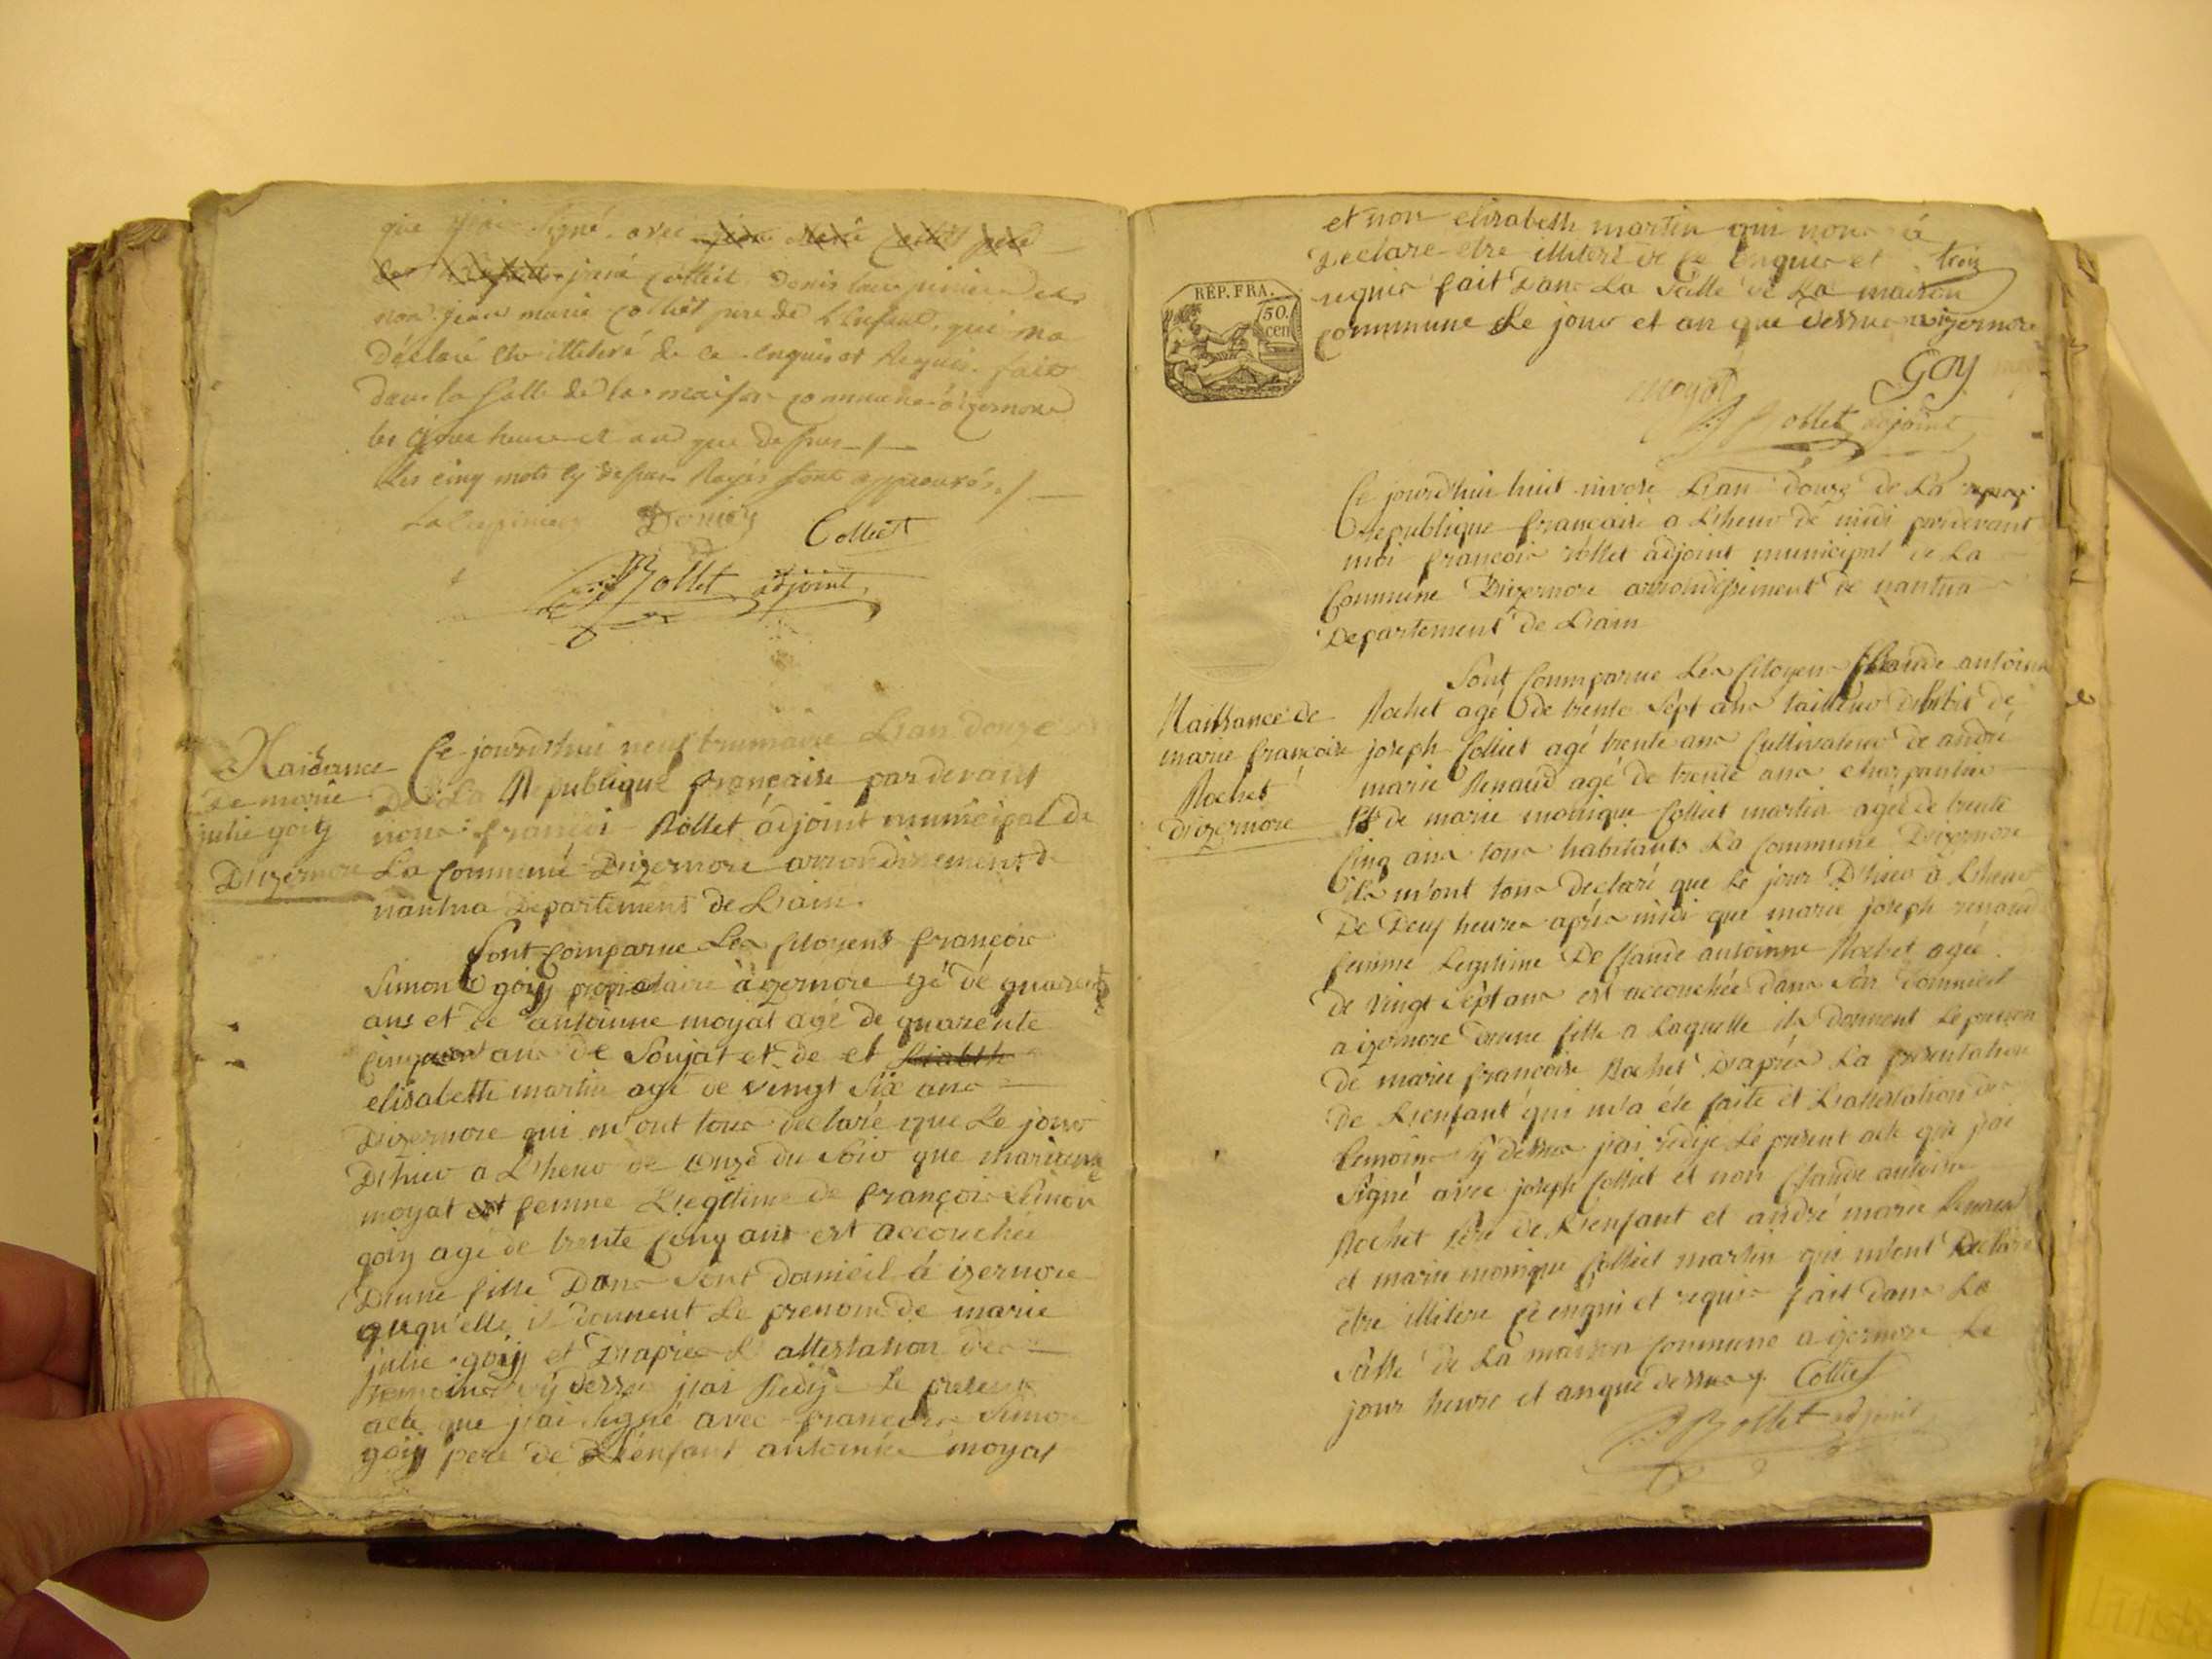 que j'ai signé avec jean marie colliet père
de l'enfant joseph colliet denis
non jean marie colliet pere de l'enfant, qui m'a
Déclaré etre illiteré de ce enquis et Requis. fait
dans la salle de la maison commune à izernore
les jour heure et an que dessus
Les cinq mots cy dessus Rayés sont approuvés.
Colliet
Rollet adjoint
Naissance
de marie
julie goiy
Dizernore
Ce jourd'hui neuf brumaire L'an douze
De La République française par devant
nous françois Rollet adjoint municipal de
La Commune Dizernore arrondissement de
nantua Departement de L'ain.
Sont comparue Les citoyens françois
Simon goiy proprietaire à izernore agé de quarente
ans et de antoinne moyat agé de quarente
cinq ans de Soujat et de et
elisabeth martin agé de vingt six ans
Dizernore qui m'ont tous declaré que Le jour
D'hier a L'heur de onze du soir que
moyat est femme Legitime de françois Simon
goiy agé de trente cinq ans est accouchée
D'une fille Dans sont domicil à izernore
ququ'elle il donnent Le prenom de marie
julie goiy et D'apres L'attestation des
temoins cÿ dessus j'ai Redijé Le present
acte que j'ai signé avec françois Simon
goiy pere de L'enfant antoinne moyat
et non elisabeth martin qui nous à
Declare etre illiteré de ce enquis et
requis fait dans La Salle de La maison
commune Le jour et an que dessus a izernore
trois
RÉP. FRA.
50.
cen
moyat
Goy
Rollet adjoint
Ce jourd'hui huit nivose L'an douze de La
republique française a L'heur de midi pardevant
moi françois rollet adjoint municipal de La
Commune Dizernore arrondissement de nantua
Departement de L'ain
Naissance de
marie françoise
Rochet
dizernore
Sont Comparue Les Citoyens Claude antoine
Rochet agé de trente Sept ans tailleur d'habit de
joseph Colliet agé trente ans Cultivateur de andré
marie Renaud agé de trente ans charpantier
et de marie monique Colliet martin agée de trente
Cinq ans tous habitants La Commune Dizernore
ils m'ont tous declaré que Le jour D'hier à L'heur
De Deux heures après midi que marie joseph renaud
femme Legitime De Claude antoinne Rochet agée
de vingt Sept ans est accouchée dans son domicil
a izernore d'une fille a Laquelle ils donnent Le prenom
de marie françoise Rochet D'après La presentation
De L'enfant qui m'a été faite et L'attestation des
temoins cÿ dessus j'ai redijé Le present acte que j'ai
Signé avec joseph Colliet et non Claude antoine
Rochet Pere de L'enfant et andré marie Renaud
et marie monique Colliet martin qui m'ont Declaré
etre illitere ce enquis et requis fait dans La
Salle de La maison commune a izernore Le
jour heure et an que dessus Colliet
Rollet adjoint